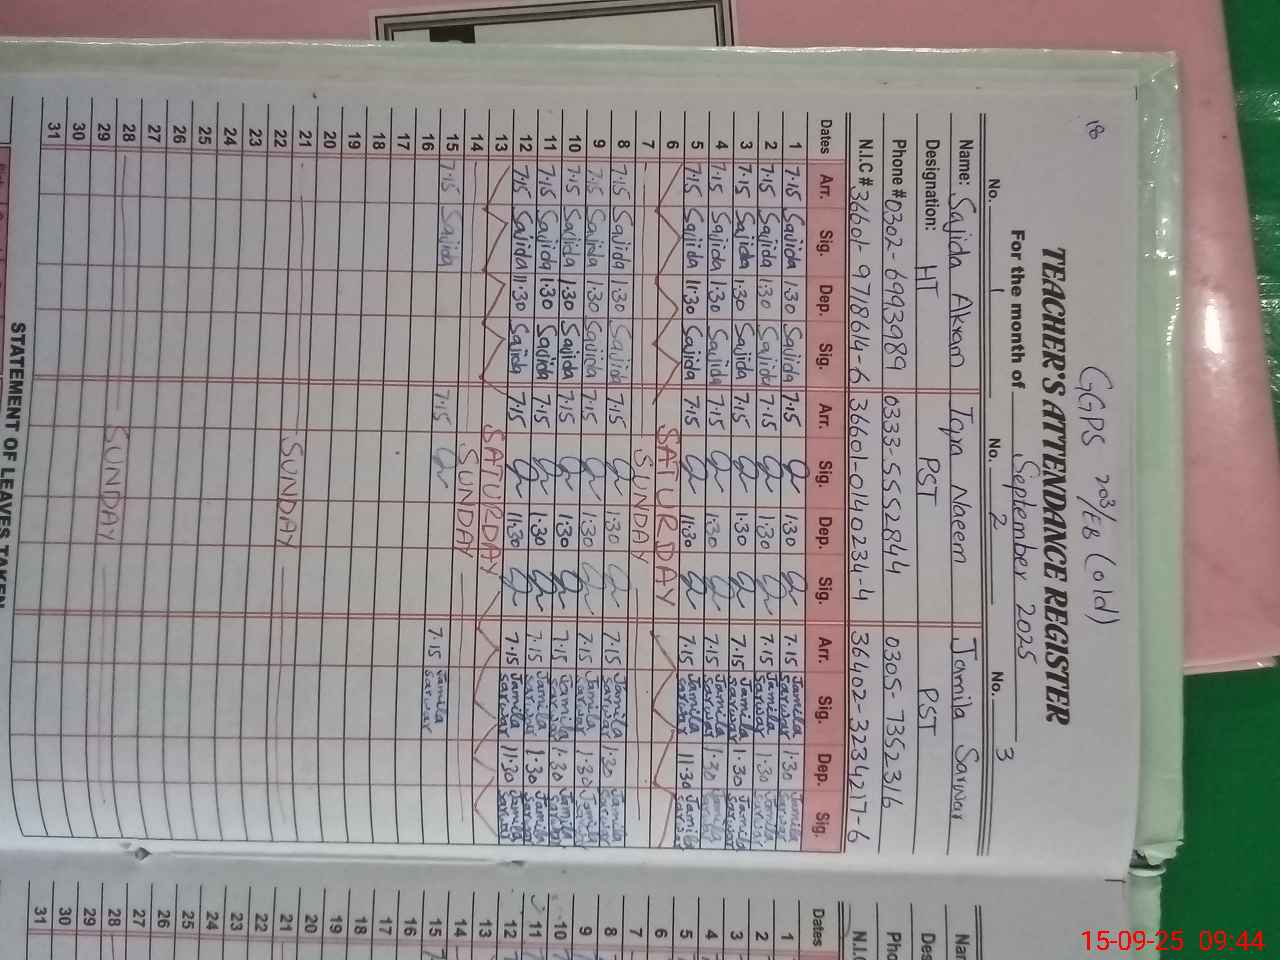 18
GGPS 203/EB (old)
TEACHER'S ATTENDANCE REGISTER
For the month of September 2025
No. 1 No. 2 No. 3
Name: Sajida Akram Iqra Naeem Jamila Sarwar
Designation: HT PST PST
Phone # 0302-6993989 0333-5552844 0305-7352316
N.I.C # 36601-9718614-6 36601-0140234-4 36402-3234217-6
Dates Arr. Sig. Dep. Sig. Arr. Sig. Dep. Sig. Arr. Sig. Dep. Sig.
1 7.15 Sajida 1.30 Sajida 7.15 1.30 7.15 Jamila Sarwar 1.30 Jamila Sarwar
2 7.15 Sajida 1.30 Sajida 7.15 1.30 7.15 Jamila Sarwar 1.30 Jamila Sarwar
3 7.15 Sajida 1.30 Sajida 7.15 1.30 7.15 Jamila Sarwar 1.30 Jamila Sarwar
4 7.15 Sajida 1.30 Sajida 7.15 1.30 7.15 Jamila Sarwar 1.30 Jamila Sarwar
5 7.15 Sajida 11.30 Sajida 7.15 11.30 7.15 Jamila Sarwar 11.30 Jamila Sarwar
6 SATURDAY
7 SUNDAY
8 7.15 Sajida 1.30 Sajida 7.15 1.30 7.15 Jamila Sarwar 1.30 Jamila Sarwar
9 7.15 Sajida 1.30 Sajida 7.15 1.30 7.15 Jamila Sarwar 1.30 Jamila Sarwar
10 7.15 Sajida 1.30 Sajida 7.15 1.30 7.15 Jamila Sarwar 1.30 Jamila Sarwar
11 7.15 Sajida 1.30 Sajida 7.15 1.30 7.15 Jamila Sarwar 1.30 Jamila Sarwar
12 7.15 Sajida 11.30 Sajida 7.15 11.30 7.15 Jamila Sarwar 11.30 Jamila Sarwar
13 SATURDAY
14 SUNDAY
15 7.15 Sajida 7.15 7.15 Jamila Sarwar
16
17
18
19
20
21 SUNDAY
22
23
24
25
26
27
28 SUNDAY
29
30
31
STATEMENT OF LEAVES TAKEN
Dates
1
2
3
4
5
6
7
8
9
10
11
12
13
14
15
16
17
18
19
20
21
22
23
24
25
26
27
28
29
30
31
15-09-25 09:44